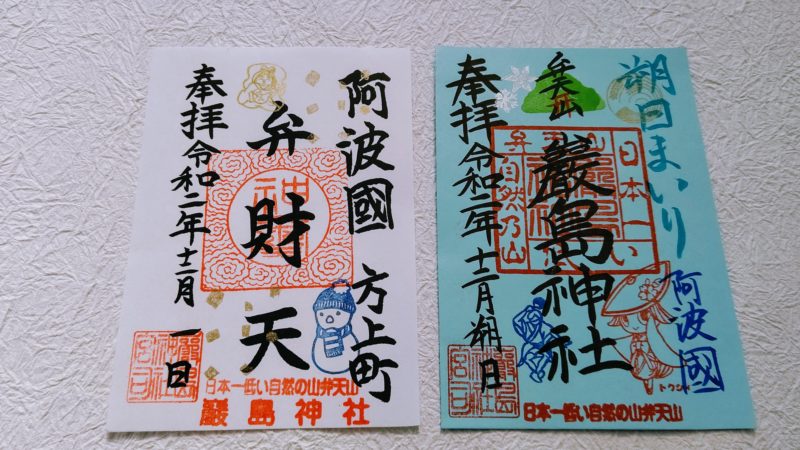 阿波國 方上町
弁財天
奉拝令和二年十二月一日
日本一低い自然の山弁天山
巖島神社
朔日まいり
阿波國
弁天山
巖島神社
奉拝令和二年十二月朔日
日本一
い
弁天山
自然乃山
トクシィ
日本一低い自然の山弁天山